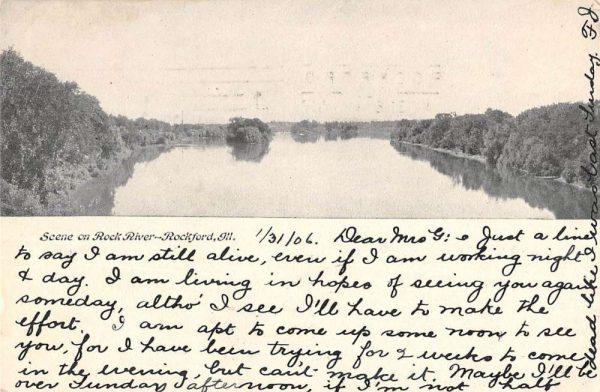 Scene on Rock River--Rockford, Ill.
1/31/06. Dear Mrs G: Just a line
to say I am still alive, even if I am working night
& day. I am living in hopes of seeing you again
someday, altho' I see I'll have to make the
effort. I am apt to come up some noon to see
you, for I have been trying for 2 weeks to come
in the evening, but can't make it. Maybe I'll be
over Sunday afternoon, if I'm not half
dead like I was last Sunday. F.J.